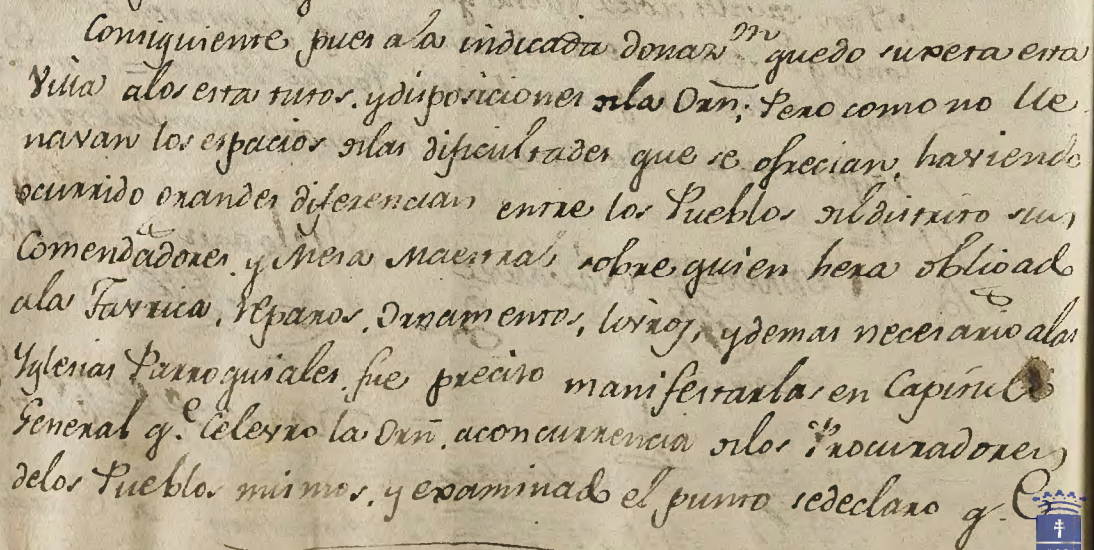 Consiguiente pues a la indicada donaz.n quedo suxeta esta
Villa a los estatutos, y disposiciones de la Orn; Pero como no lle
navan los espacios de las dificultades que se ofrecian, haviendo
ocurrido grandes diferencias entre los Pueblos del distrito sus
Comendadores, y Mesa Maestral, sobre quien hera obligado
a la Favrica, reparos, Ornamentos, livros, y demas necesario a las
Yglesias Parroquiales, fue preciso manifestarlas en Capitulo
General q.e celevro la Orn. a concurrencia de los Procuradores
de los Pueblos mismos, y examinado el punto se declaro q.e